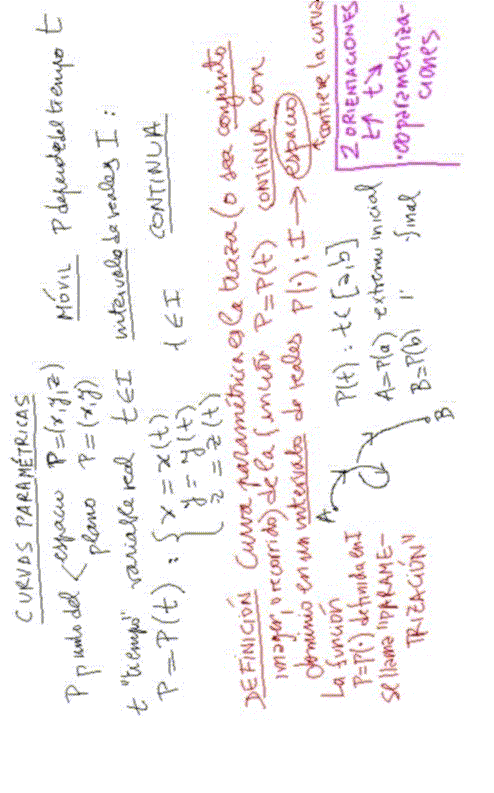 CURVAS PARAMÉTRICAS
P punto del < espacio P=(x,y,z) MÓVIL P depende del tiempo t
plano P=(x,y)
t "tiempo" variable real t∈I intervalo de reales I:
P=P(t): { x=x(t)
y=y(t) t∈I CONTINUA
z=z(t)
DEFINICIÓN Curva paramétrica es la traza (o sea conjunto
imagen, o recorrido) de la función P=P(t) CONTINUA con
dominio en un intervalo de reales P(·): I → espacio
contiene la curva
La función
P=P(·) definida en I
se llama "PARAME-
TRIZACIÓN"
A
B
P(t): t∈[a,b]
A=P(a) extremo inicial
B=P(b) " final
2 ORIENTACIONES
↳↑ t↘
·∞ parametriza-
ciones